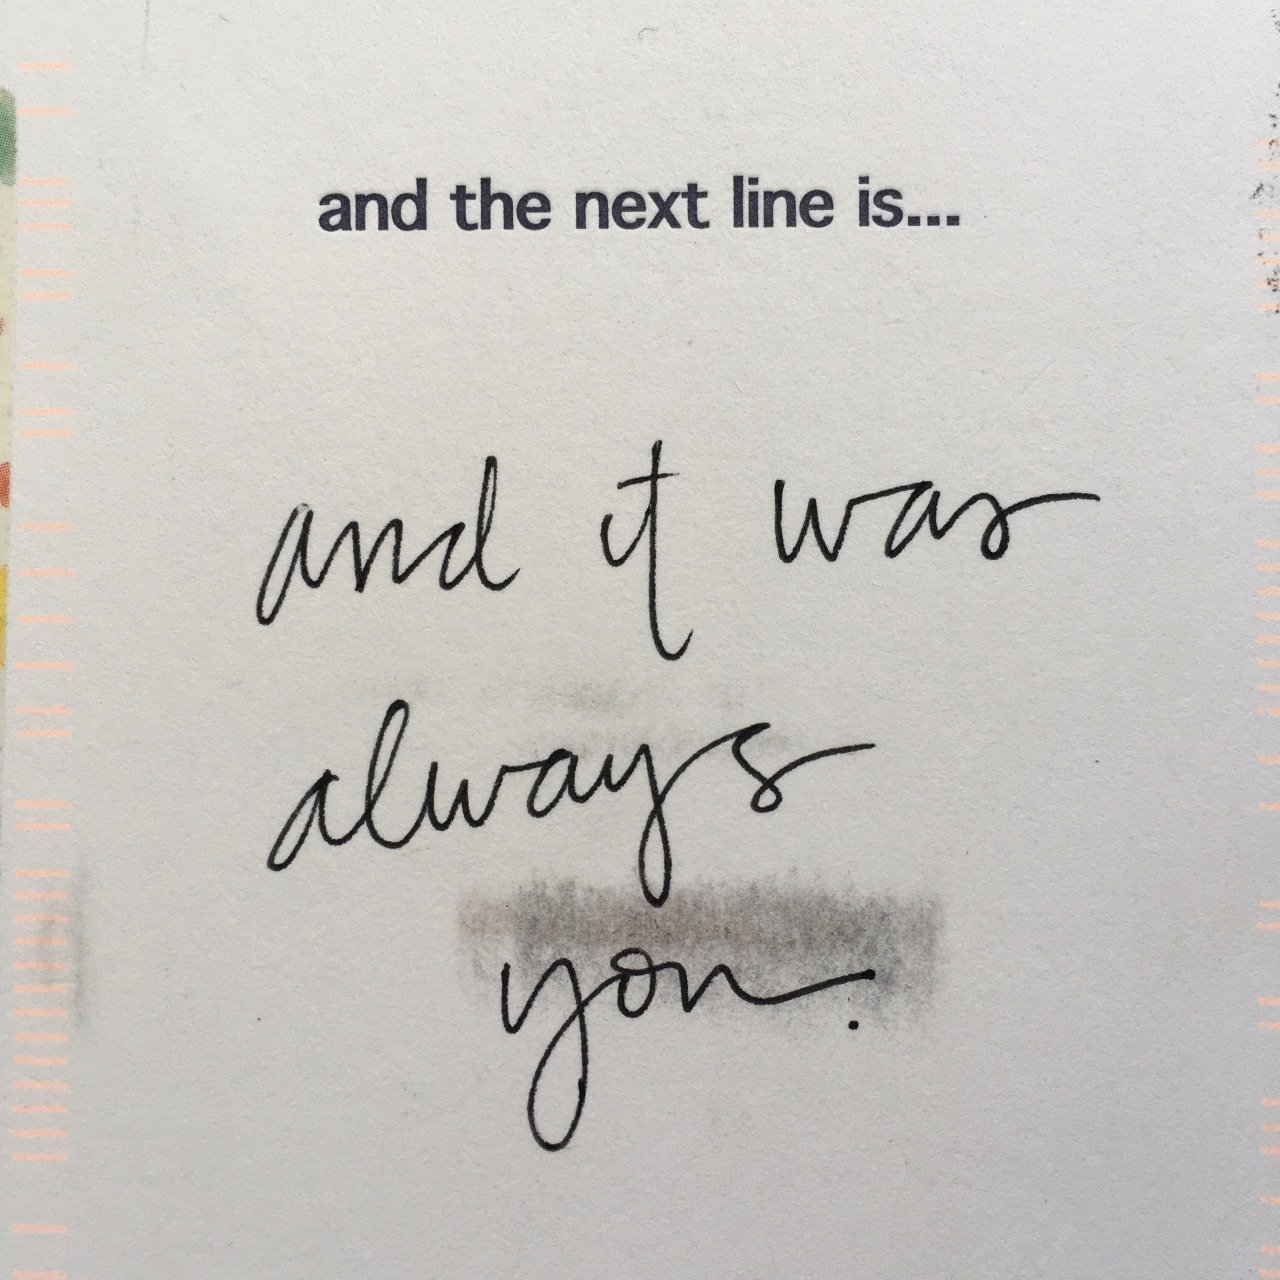 and the next line is...
and it was
always
you.